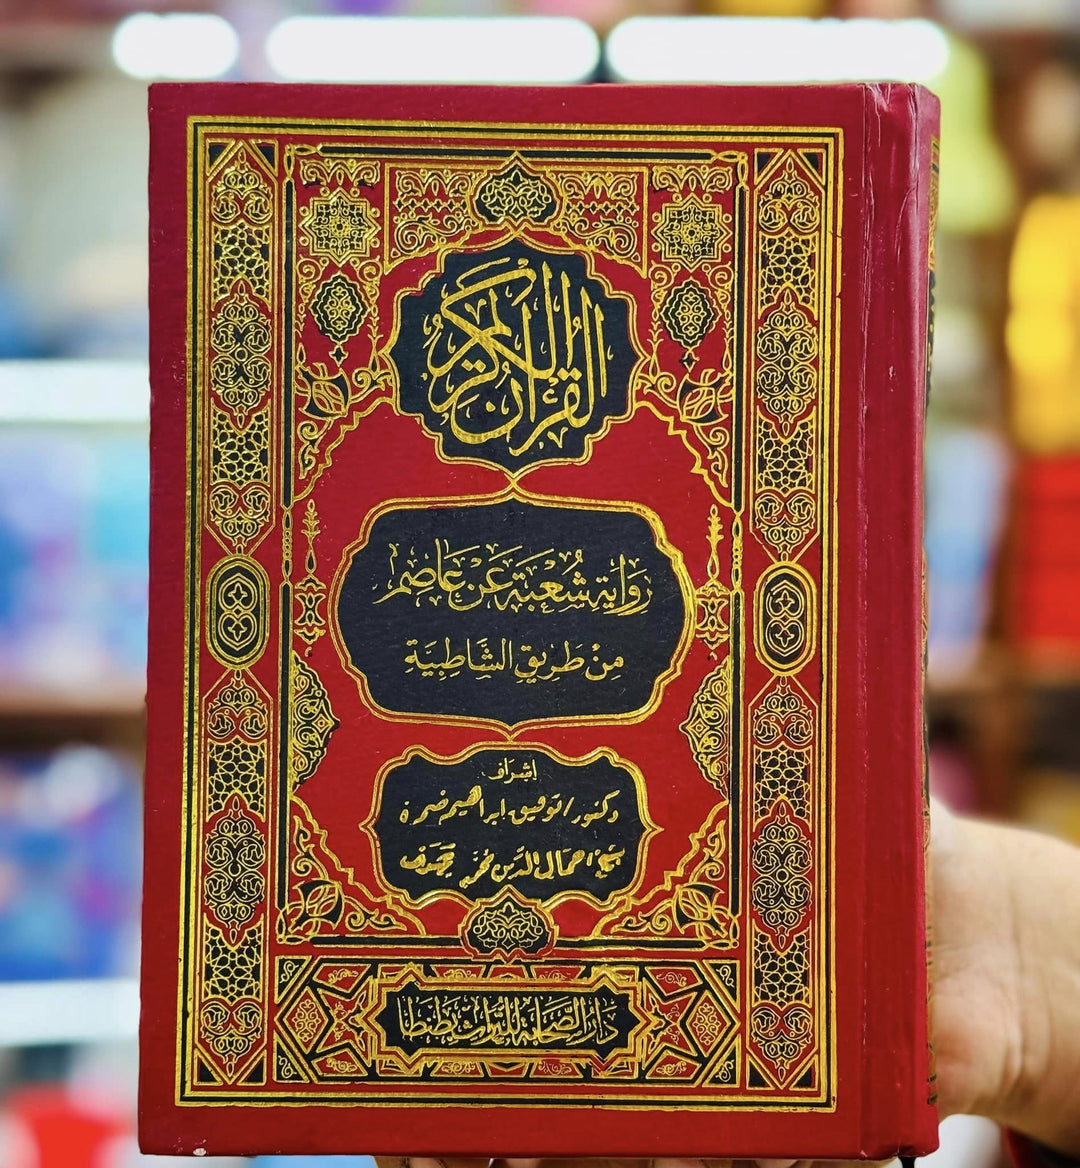 القرآن الكريم
رواية شعبة عن عاصم
من طريق الشاطبية
إشراف
دكتور / توفيق إبراهيم ضمرة
شيخ / جمال الدين محمد
دار الصحابة للتراث بطنطا